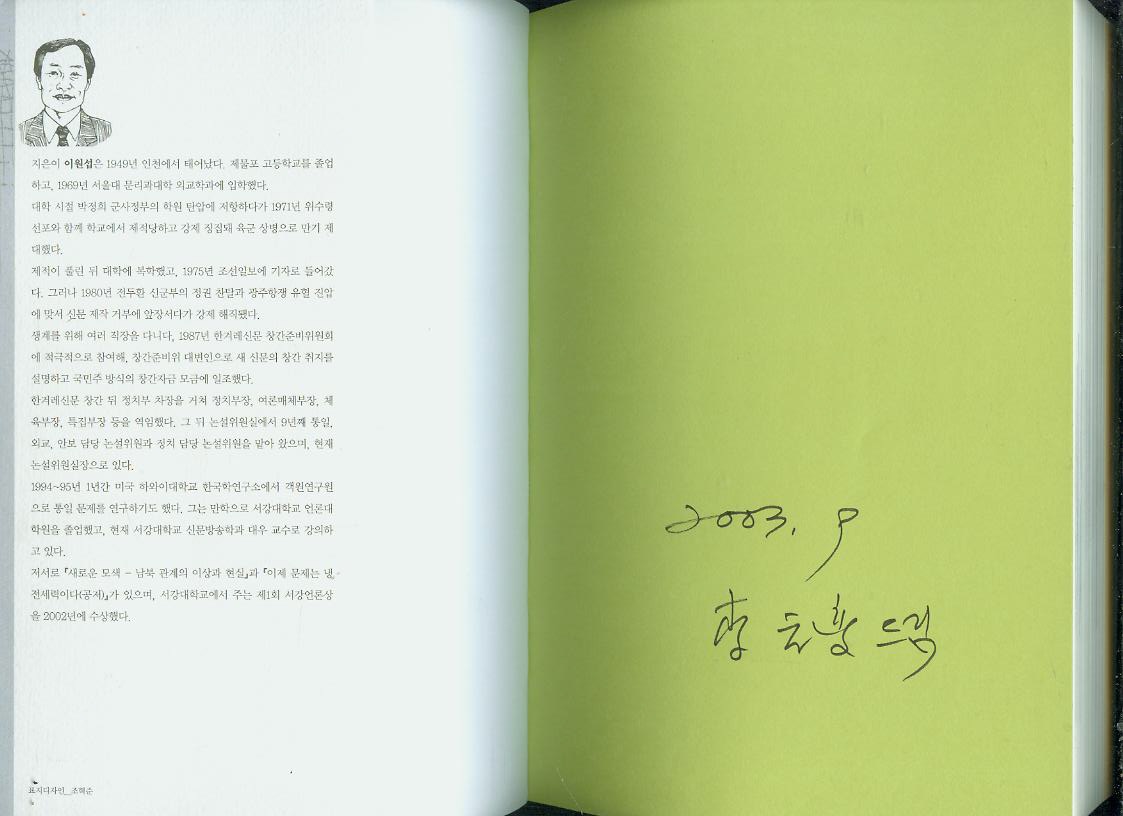 지은이 이원섭은 1949년 인천에서 태어났다. 제물포 고등학교를 졸업
하고, 1969년 서울대 문리과대학 외교학과에 입학했다.
대학 시절 박정희 군사정부의 학원 탄압에 저항하다가 1971년 위수령
선포와 함께 학교에서 제적당하고 강제 징집돼 육군 상병으로 만기 제
대했다.
제적이 풀린 뒤 대학에 복학했고, 1975년 조선일보에 기자로 들어갔
다. 그러나 1980년 전두환 신군부의 정권 찬탈과 광주항쟁 유혈 진압
에 맞서 신문 제작 거부에 앞장서다가 강제 해직됐다.
생계를 위해 여러 직장을 다니다, 1987년 한겨레신문 창간준비위원회
에 적극적으로 참여해, 창간준비위 대변인으로 새 신문의 창간 취지를
설명하고 국민주 방식의 창간자금 모금에 일조했다.
한겨레신문 창간 뒤 정치부 차장을 거쳐 정치부장, 여론매체부장, 체
육부장, 특집부장 등을 역임했다. 그 뒤 논설위원실에서 9년째 통일,
외교, 안보 담당 논설위원과 정치 담당 논설위원을 맡아 왔으며, 현재
논설위원실장으로 있다.
1994~95년 1년간 미국 하와이대학교 한국학연구소에서 객원연구원
으로 통일 문제를 연구하기도 했다. 그는 만학으로 서강대학교 언론대
학원을 졸업했고, 현재 서강대학교 신문방송학과 대우 교수로 강의하
고 있다.
저서로 『새로운 모색 - 남북 관계의 이상과 현실』과 『이제 문제는 냉
전세력이다(공저)』가 있으며, 서강대학교에서 주는 제1회 서강언론상
을 2002년에 수상했다.
표지디자인_조혁준
2003. 9
李 元 드림